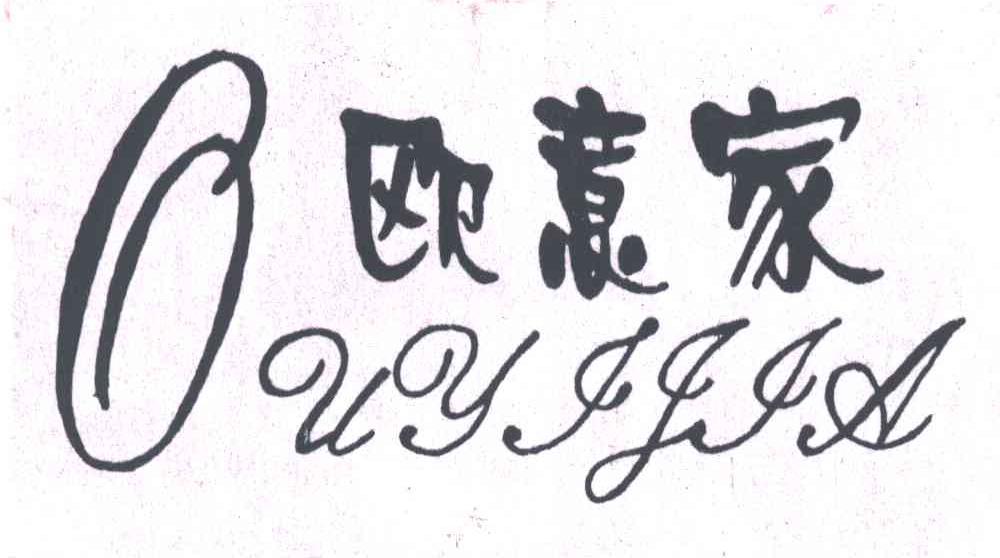 欧意家
OUYIJIA